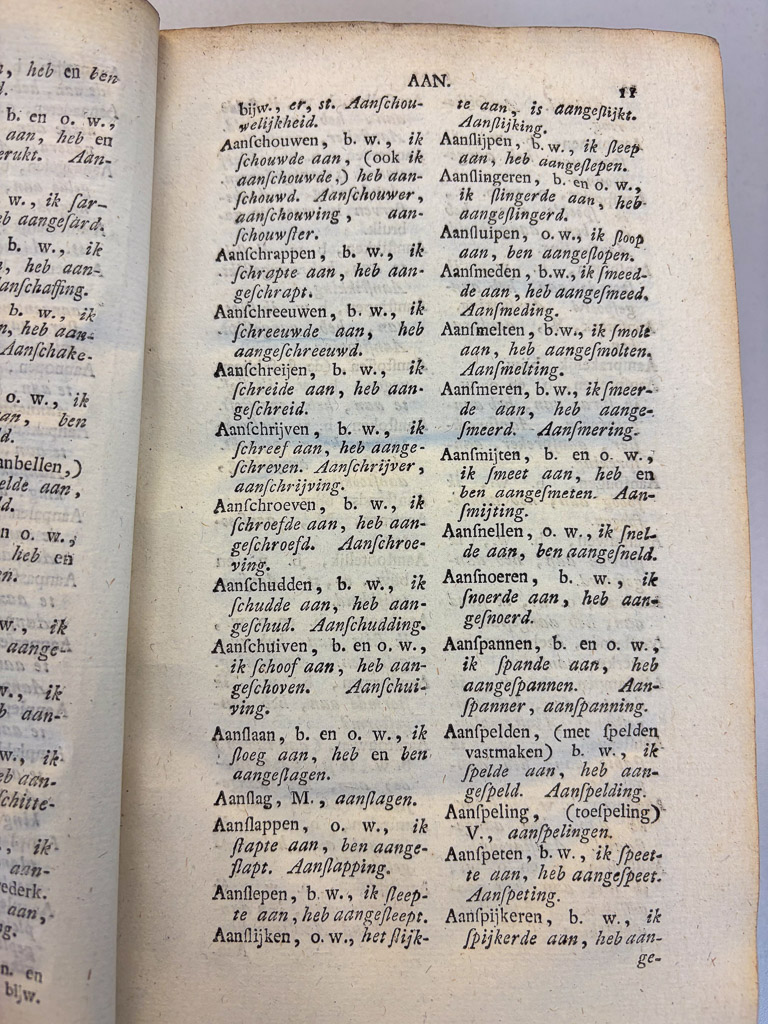 , heb en ben
d.
b. en o. w.,
aan, heb en
erukt. Aan-
w., ik ſar-
eb aangeſard.
b. w., ik
, heb aan-
anſchaffing.
b. w., ik
n, heb aan-
Aanſchake-
o. w., ik
an, ben
d.
anbellen,)
elde aan,
d.
n o. w.,
heb en
en.
w., ik
aange-
v., ik
b aan-
w., ik
eb aan-
ſchitte-
., ik
aan-
ederk.
aan,
g.
n. en
bijw.
AAN.
11
bijw., er, st. Aanſchou-
welijkheid.
Aanſchouwen, b. w., ik
ſchouwde aan, (ook ik
aanſchouwde,) heb aan-
ſchouwd. Aanſchouwer,
aanſchouwing, aan-
ſchouwſter.
Aanſchrappen, b. w., ik
ſchrapte aan, heb aan-
geſchrapt.
Aanſchreeuwen, b. w., ik
ſchreeuwde aan, heb
aangeſchreeuwd.
Aanſchreijen, b. w., ik
ſchreide aan, heb aan-
geſchreid.
Aanſchrijven, b. w., ik
ſchreef aan, heb aange-
ſchreven. Aanſchrijver,
aanſchrijving.
Aanſchroeven, b. w., ik
ſchroefde aan, heb aan-
geſchroefd. Aanſchroe-
ving.
Aanſchudden, b. w., ik
ſchudde aan, heb aan-
geſchud. Aanſchudding.
Aanſchuiven, b. en o. w.,
ik ſchoof aan, heb aan-
geſchoven. Aanſchui-
ving.
Aanſlaan, b. en o. w., ik
ſloeg aan, heb en ben
aangeſlagen.
Aanſlag, M., aanſlagen.
Aanſlappen, o. w., ik
ſlapte aan, ben aange-
ſlapt. Aanſlapping.
Aanſlepen, b. w., ik ſleep-
te aan, heb aangeſleept.
Aanſlijken, o. w., het ſlijk-
te aan, is aangeſlijkt.
Aanſlijking.
Aanſlijpen, b. w., ik ſleep
aan, heb aangeſlepen.
Aanſlingeren, b. en o. w.,
ik ſlingerde aan, heb
aangeſlingerd.
Aanſluipen, o. w., ik ſloop
aan, ben aangeſlopen.
Aanſmeden, b.w., ik ſmeed-
de aan, heb aangeſmeed.
Aanſmeding.
Aanſmelten, b.w., ik ſmolt
aan, heb aangeſmolten.
Aanſmelting.
Aanſmeren, b. w., ik ſmeer-
de aan, heb aange-
ſmeerd. Aanſmering.
Aanſmijten, b. en o. w.,
ik ſmeet aan, heb en
ben aangeſmeten. Aan-
ſmijting.
Aanſnellen, o. w., ik ſnel-
de aan, ben aangeſneld.
Aanſnoeren, b. w., ik
ſnoerde aan, heb aan-
geſnoerd.
Aanſpannen, b. en o. w.,
ik ſpande aan, heb
aangeſpannen. Aan-
ſpanner, aanſpanning.
Aanſpelden, (met ſpelden
vastmaken) b. w., ik
ſpelde aan, heb aan-
geſpeld. Aanſpelding.
Aanſpeling, (toeſpeling)
V., aanſpelingen.
Aanſpeten, b. w., ik ſpeet-
te aan, heb aangeſpeet.
Aanſpeting.
Aanſpijkeren, b. w., ik
ſpijkerde aan, heb aan-
ge-